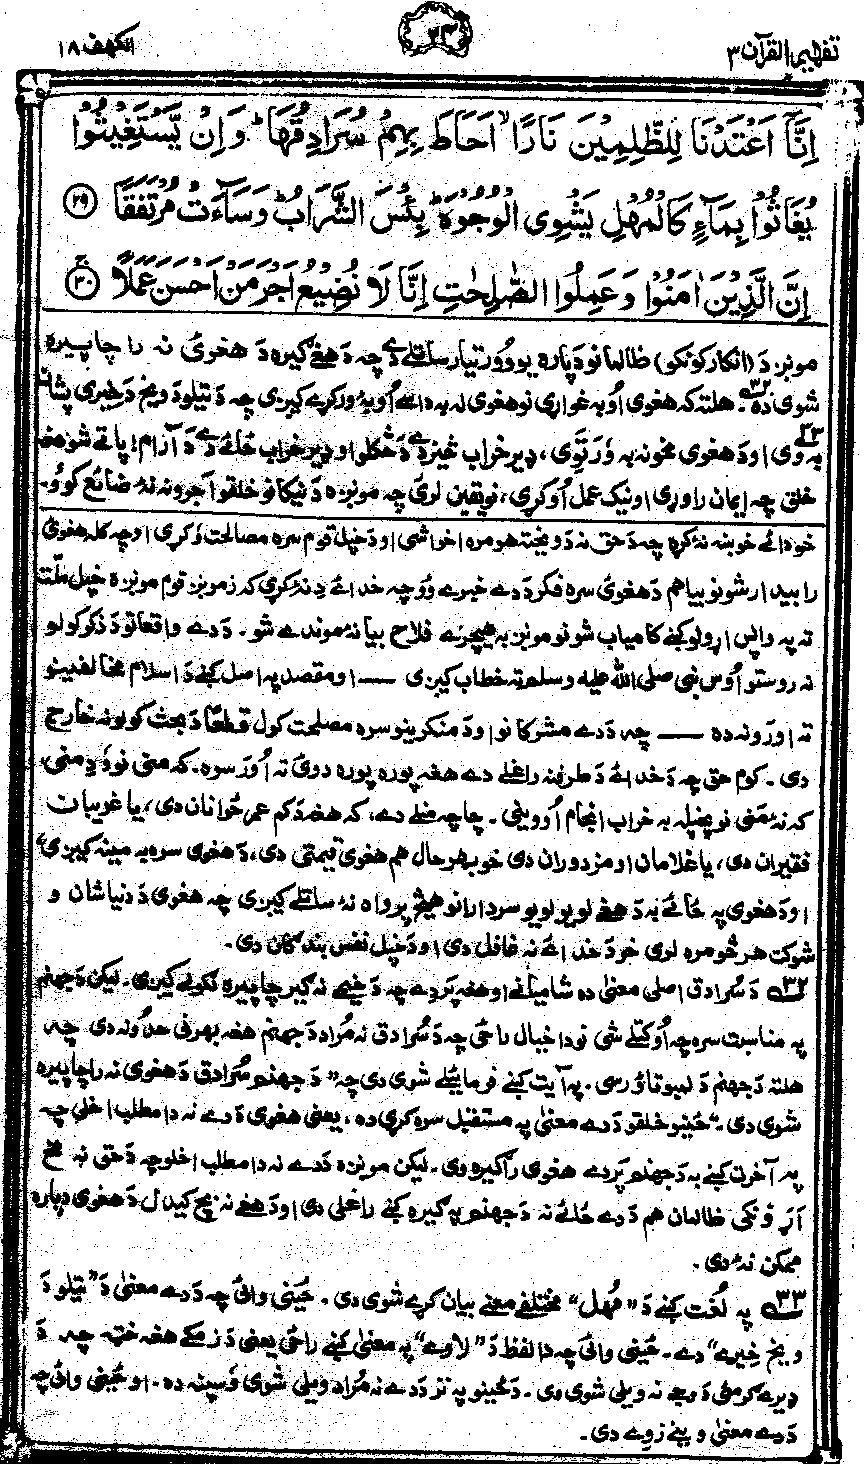 تفهيم القرآن ٣
٢٣
الكهف ١٨
اِنَّآ اَعْتَدْنَا لِلظّٰلِمِيْنَ نَارًا ۙ اَحَاطَ بِهِمْ سُرَادِقُهَا ؕ وَاِنْ يَّسْتَغِيْثُوْا
يُغَاثُوْا بِمَآءٍ كَالْمُهْلِ يَشْوِى الْوُجُوْهَ ؕ بِئْسَ الشَّرَابُ ؕ وَسَآءَتْ مُرْتَفَقًا ﴿٢٩﴾
اِنَّ الَّذِيْنَ اٰمَنُوْا وَعَمِلُوا الصّٰلِحٰتِ اِنَّا لَا نُضِيْعُ اَجْرَ مَنْ اَحْسَنَ عَمَلًا ﴿٣٠﴾
مونږ. د (انکار کونکو) ظالمانو دپاره يو وور تيار ساتلے دے چه د هغے ګيره د هغوئ نه راچاپيره
شوى ده ٣٢. هلته که هغوى اوبه غواړى نو هغوى له به داسے اوبه ورکړے کيږى چه د تيلو د ويخ د خيرى پشان
به وى ٣٣ او د هغوى مخونه به ورتوى، ډير خراب څيز دے د څکلو او ډير خراب ځائے دے د آرام! پاتے شو هغه
خلق چه ايمان راوړى او نيک عمل اوکړى، نو يقين لرئ چه مونږه د نيکانو خلقو اجرونه نۀ ضائع کوو.
خدائے خوښه نۀ کړه چه د حق نه د ويختۀ هومره اخوا شى او د خپل قوم سره مصالحت وکړى او چه کله هغوئ
رابيدار شو نو بيا هم د هغوئ سره فکر د دے خبرے وو چه خدائے دِ نۀ کړى که زمونږ قوم مونږه خپل ملّت
ته په واپس اړولو کښے کامياب شو نو مونږ به هيچرے فلاح بيا نۀ موندے شو. د دے واقعاتو د ذکر کولو
نه روستو اوس نبى صلى الله عليه وسلم ته خطاب کيږى —— او مقصد په اصل کښے د اسلام مخالفينو
ته اورونه ده —— چه د دے مشرکانو او د منکرينو سره مصلحت کول قطعًا د بحث کولو نه خارج
دى. کوم حق چه د خدائے د طرفه راغلے دے هغه پوره پوره دوئ ته اوروه. که منى نو دِ منى،
که نۀ منى نو پخپله به خراب انجام اووينى. چا چه منلے دے، که هغه د کم عمر ځوانان دى، يا غريبان
فقيران دى، يا غلامان او مزدوران دى خو بهرحال هم هغوئ قيمتى دى، د هغوى سره به مينه کيږى
او د هغوى په ځائے به د هغے لويو لويو سردارانو هيڅ پرواه نۀ ساتلے کيږى چه هغوى د دنيا شان و
شوکت هر څومره لرى خو د خدائے نه غافل دى او د خپل نفس بندګان دى.
٣٢ د سُرادق اصلى معنىٰ ده شاميانے او هغه پردے چه د خيمے نه ګيرچاپيره لګولے کيږى. ليکن د جهنم
په مناسبت سره چه اوکتلے شى نو دا خيال راځى چه د سُرادق نه مُراد د جهنم هغه بهرنى حدونه دى چه
هلته د جهنم د لمبو تاؤ رسى. په آيت کښے فرمائيلے شوى دى چه "د جهنم سُرادق د هغوى نه راچاپيره
شوى دى." ځينو خلقو د دے معنىٰ په مستقبل سره کړى ده، يعنى هغوى د دے نه دا مطلب اخلى چه
په آخرت کښے به د جهنم پردے هغوى راګيره وى. ليکن مونږه د دے نه دا مطلب اخلو چه د حق نه مخ
اړوونکى ظالمان هم د دے ځائے نه د جهنم په ګيره کښے راغلى دى او د هغے نه بچ کيدل د هغوى دپاره
ممکن نۀ دى.
٣٣ په لُغت کښے د "مُهل" مختلفے معنے بيان کړے شوى دى. ځينى وائى چه د دے معنىٰ د "تيلو د
ويخ خيرے" دے. ځينى وائى چه دا لفظ د "لاوے" په معنىٰ کښے راځى يعنى د زمکے هغه څيزه چه د
ډيرے ګرمئ د وجے نه ويلى شوى وى. د ځينو په نزد د دے نه مُراد ويلى شوى وسپنه ده. او ځينى وائى چه
د دے معنىٰ ويينے زوے دى.